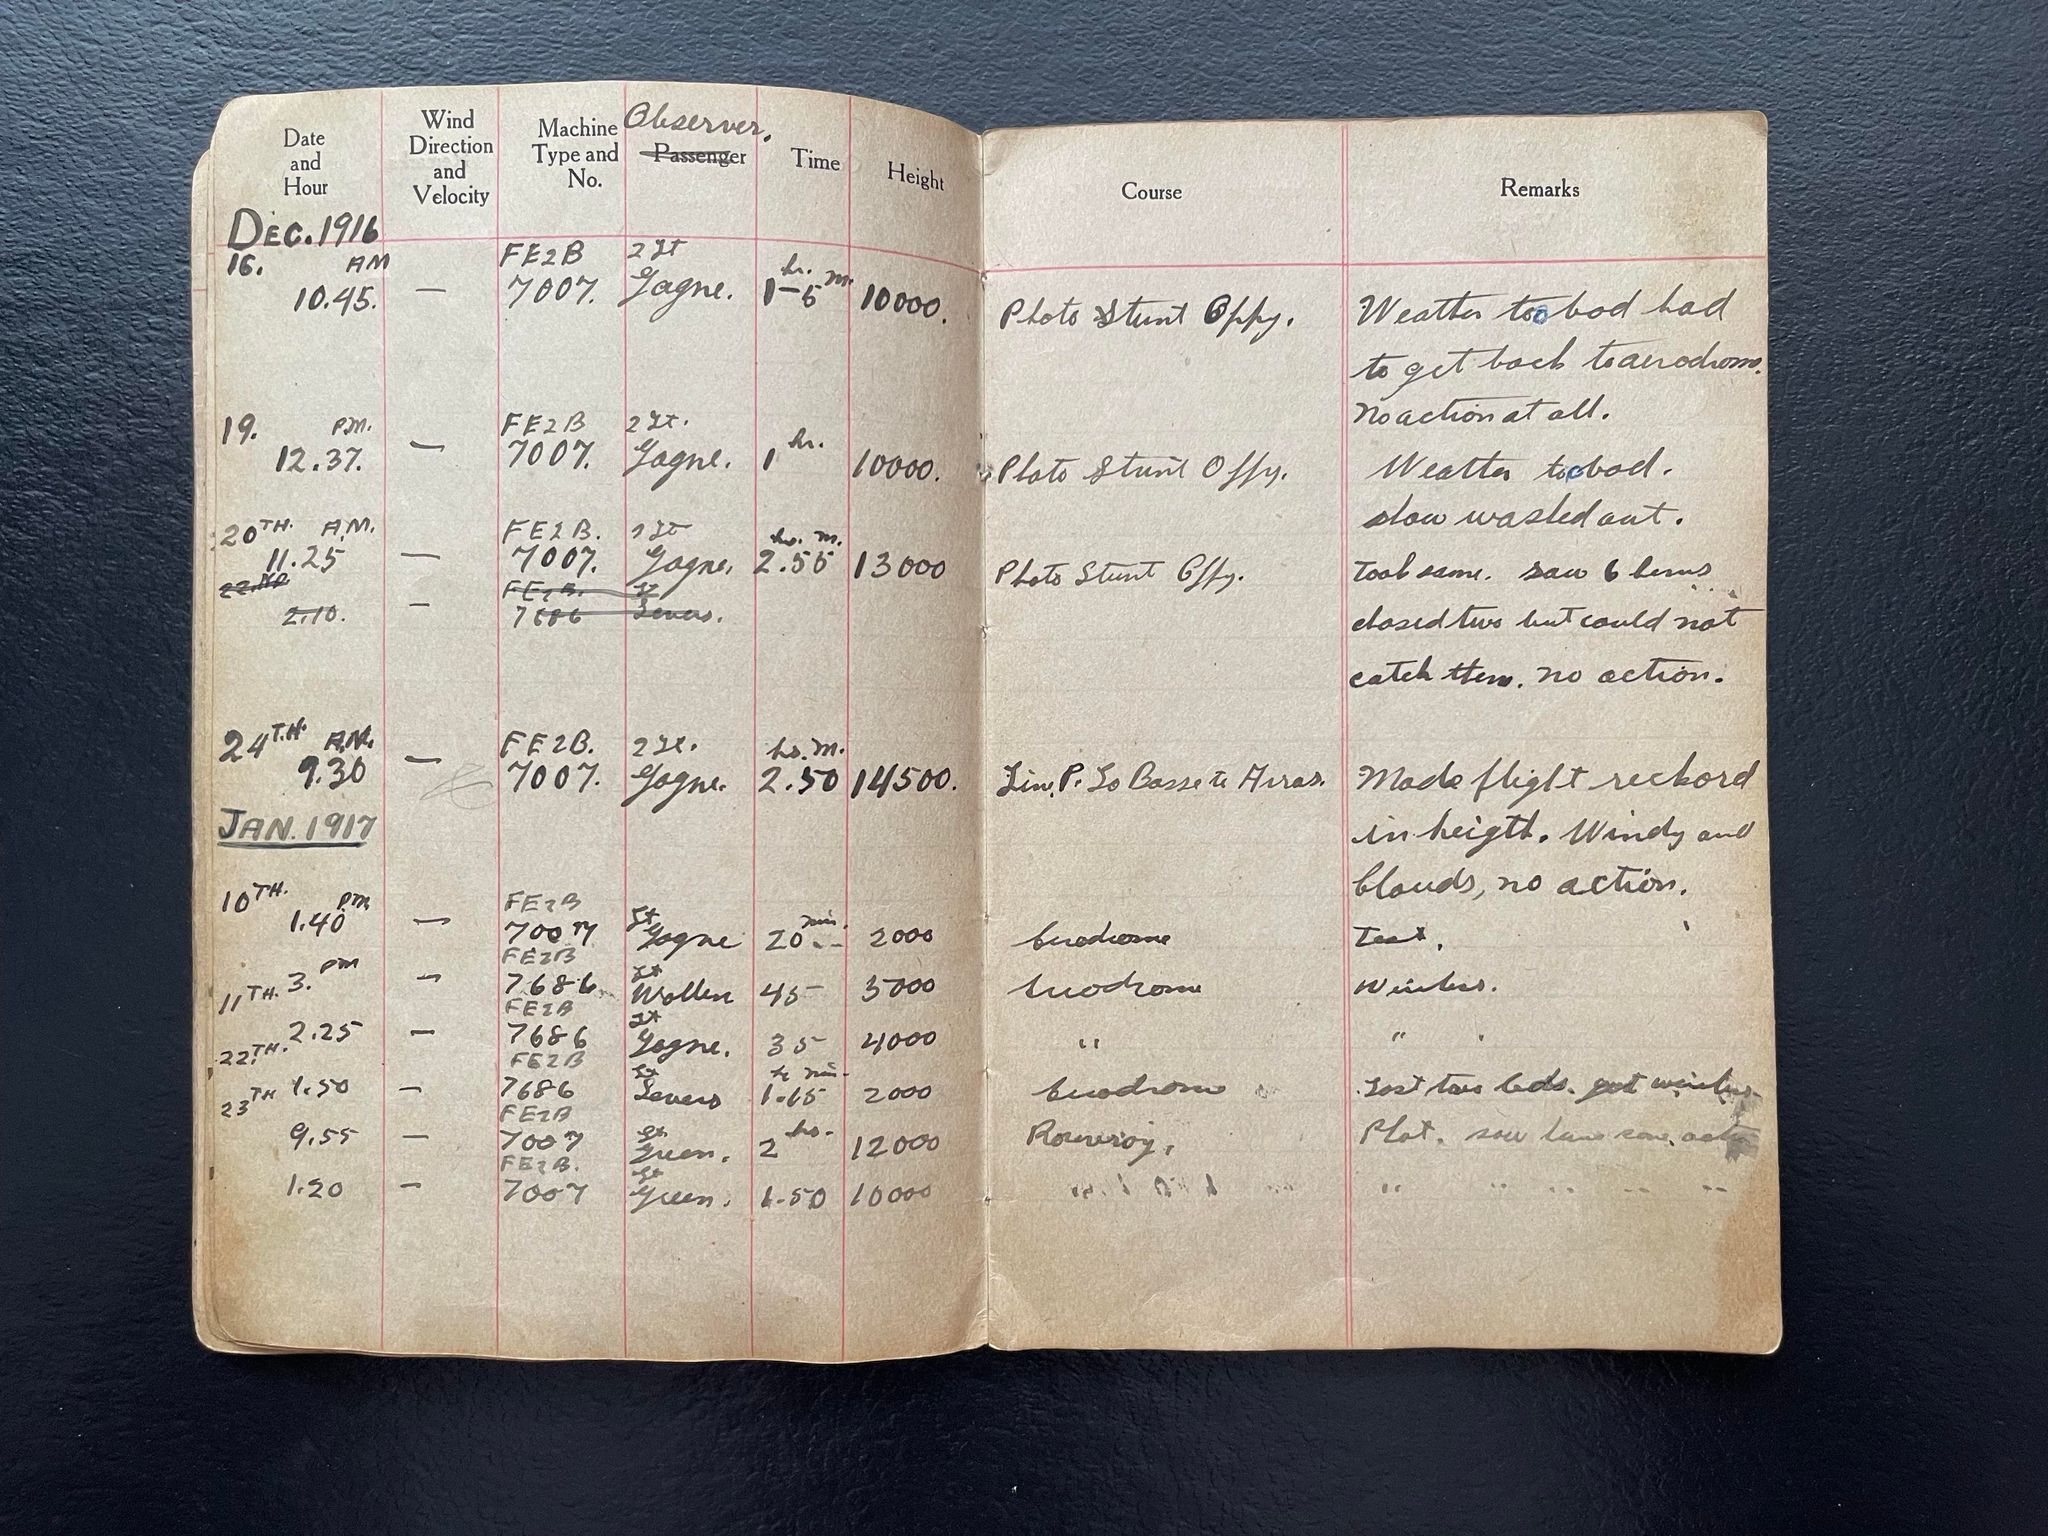 Date and Hour
Wind Direction and Velocity
Machine Type and No.
Observer. Passenger
Time
Height
Course
Remarks
DEC. 1916
16. AM FE2B 2 Lt hr. m.
10.45. — 7007. Gagne. 1-5 10000. Photo Stunt Oppy. Weather too bad had
to get back to aerodrome.
No action at all.
19. P.M. FE2B 2 Lt. hr.
12.37. — 7007. Gagne. 1 10000. Photo Stunt Oppy. Weather too bad.
show washed out.
20TH. A.M. FE2B. 2 Lt hr. m.
11.25 — 7007. Gagne. 2.55 13000 Photo Stunt Oppy. Took some. saw 6 huns
22ND FE2B. Lt
2.10. — 7686 Severs. chased two but could not
catch them. no action.
24TH. A.M. FE2B. 2 Lt. hr. m.
9.30 — 7007. Gagne. 2.50 14500. Line P. La Basse to Arras. Made flight reckord
in heigth. Windy and
clouds, no action.
JAN. 1917
10TH. PM FE2B Lt min.
1.40 — 7007 Gagne 20 2000 aerodrome Test.
11TH. 3. PM — FE2B 7686 Lt Wollen 45 5000 aerodrome Wireless.
22TH. 2.25 — FE2B 7686 Lt Gagne. 35 4000 " "
23TH 1.50 — FE2B 7686 Lt Severs 1.15 2000 aerodrome Lost two
9.55 — FE2B 7007 Lt Green. 2 hr. 12000 Rouvroy. Phot. saw huns some
1.20 — FE2B. 7007 Lt Green. 1.50 10000 " " " " " "